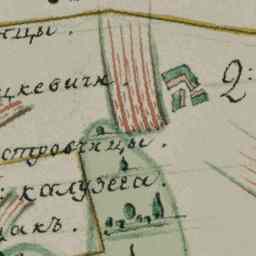 ицы.
цкевичи.
2:
островчицы.
калузега.
цакъ.